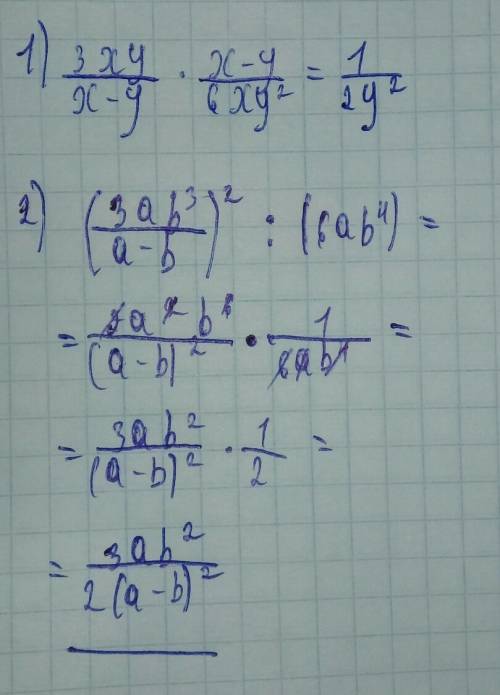 1) 3xy/(x-y) · (x-y)/(6xy²) = 1/(2y²)
2) (3ab³/(a-b))² : (6ab⁴) =
= 9a²b⁶/(a-b)² · 1/(6ab⁴) =
= 3ab²/(a-b)² · 1/2 =
= 3ab²/(2(a-b)²)